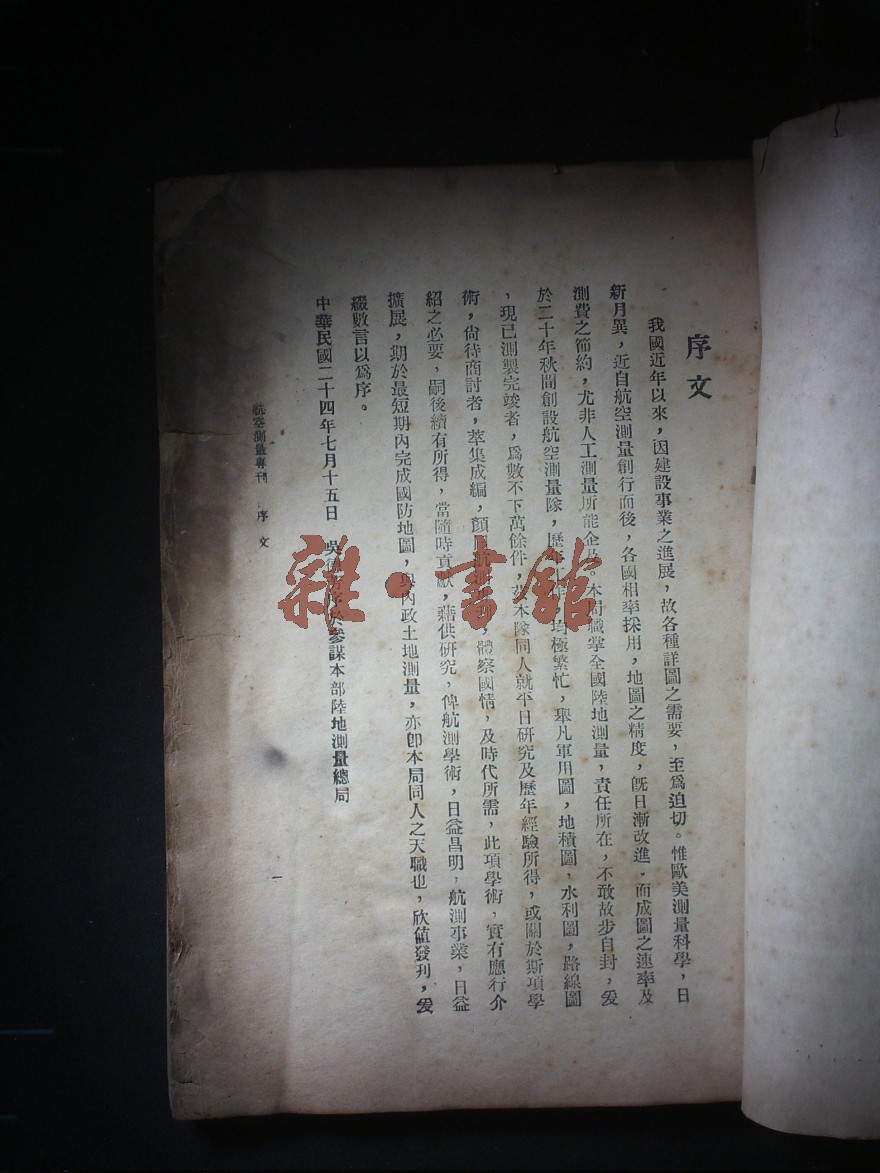 序文
我國近年以來，因建設事業之進展，故各種詳圖之需要，至爲迫切。惟歐美測量科學，日
新月異，近自航空測量創行而後，各國相率採用，地圖之精度，旣日漸改進，而成圖之速率及
測費之節約，尤非人工測量所能企及。本局職掌全國陸地測量，責任所在，不敢故步自封，爰
於二十年秋間創設航空測量隊，歷年工作，均極繁忙，舉凡軍用圖，地積圖，水利圖，路線圖
，現已測製完竣者，爲數不下萬餘件，茲本隊同人就平日研究及歷年經驗所得，或關於斯項學
術，尙待商討者，萃集成編，顏曰航測專刊，體察國情，及時代所需，此項學術，實有應行介
紹之必要，嗣後續有所得，當隨時貢獻，藉供硏究，俾航測學術，日益昌明，航測事業，日益
擴展，期於最短期內完成國防地圖，與內政土地測量，亦卽本局同人之天職也，欣値發刊，爰
綴數言以爲序。
中華民國二十四年七月十五日 吳 序於參謀本部陸地測量總局
航空測量專刊 序文
一
雜·書館